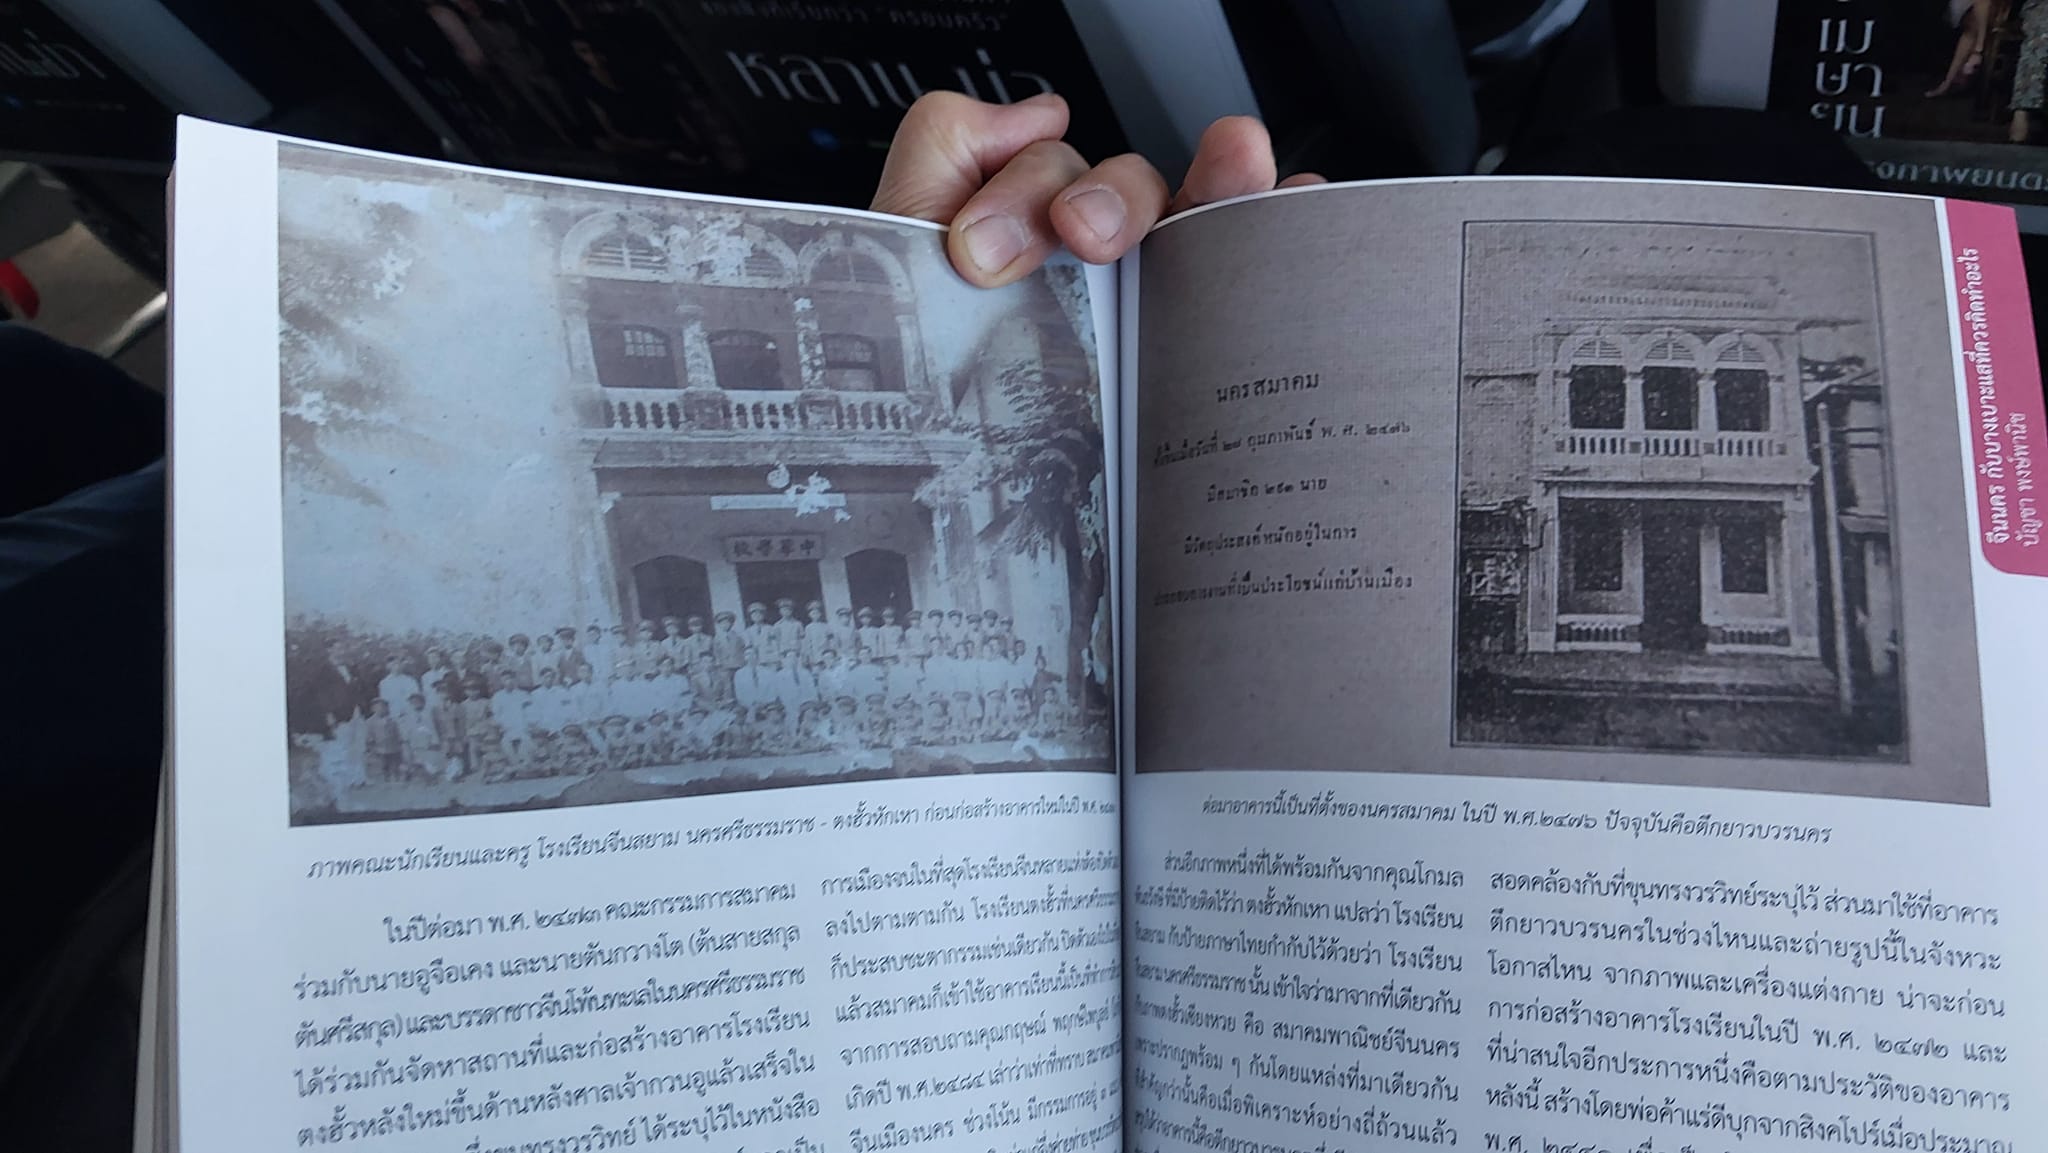 "ครอบครัว"
หลาน
中華學校
นครสมาคม
ตั้งขึ้นเมื่อวันที่ ๒๗ กุมภาพันธ์ พ.ศ. ๒๔๗๖
มีสมาชิก ๒๙๓ นาย
มีวัตถุประสงค์หนักอยู่ในการ
ประกอบการงานที่เป็นประโยชน์แก่บ้านเมือง
จีนนคร กับบางเบาะแสที่ควรคิดทำอะไร
บัญชา พงษ์พานิช
ภาพคณะนักเรียนและครู โรงเรียนจีนสยาม นครศรีธรรมราช - ตงฮั้วหักเหา ก่อนก่อสร้างอาคารใหม่ในปี พ.ศ.
ในปีต่อมา พ.ศ. ๒๔๗๓ คณะกรรมการสมาคม
ร่วมกับนายอูจือเคง และนายตันกวางโต (ต้นสายสกุล
ตันศรีสกุล) และบรรดาชาวจีนโพ้นทะเลในนครศรีธรรมราช
ได้ร่วมกันจัดหาสถานที่และก่อสร้างอาคารโรงเรียน
ตงฮั้วหลังใหม่ขึ้นด้านหลังศาลเจ้ากวนอูแล้วเสร็จใน
ขุนทรงวรวิทย์ ได้ระบุไว้ในหนังสือ
การเมืองจนในที่สุดโรงเรียนจีนหลายแห่งต้องปิดตัว
ลงไปตามตามกัน โรงเรียนตงฮั้วที่นครศรีธรรมราช
ก็ประสบชะตากรรมเช่นเดียวกัน ปิดตัวลง
แล้วสมาคมก็เข้าใช้อาคารเรียนนี้เป็นที่ทำการ
จากการสอบถามคุณกฤษณ์ พฤกษ์ไพบูลย์
เกิดปี พ.ศ.๒๔๘๔ เล่าว่าเท่าที่ทราบ สมาคม
จีนเมืองนคร ช่วงโน้น มีกรรมการอยู่ ๓
ต่อมาอาคารนี้เป็นที่ตั้งของนครสมาคม ในปี พ.ศ.๒๔๗๖ ปัจจุบันคือตึกยาวบวรนคร
ส่วนอีกภาพหนึ่งที่ได้พร้อมกันจากคุณโกมล
ที่มีป้ายติดไว้ว่า ตงฮั้วหักเหา แปลว่า โรงเรียน
จีนสยาม กับป้ายภาษาไทยกำกับไว้ด้วยว่า โรงเรียน
จีนสยาม นครศรีธรรมราช นั้น เข้าใจว่ามาจากที่เดียวกัน
กับภาพตงฮั้วเซียงหวย คือ สมาคมพาณิชย์จีนนคร
เพราะปรากฏพร้อม ๆ กันโดยแหล่งที่มาเดียวกัน
ที่สำคัญกว่านั้นคือเมื่อพิเคราะห์อย่างถี่ถ้วนแล้ว
สอดคล้องกับที่ขุนทรงวรวิทย์ระบุไว้ ส่วนมาใช้ที่อาคาร
ตึกยาวบวรนครในช่วงไหนและถ่ายรูปนี้ในจังหวะ
โอกาสไหน จากภาพและเครื่องแต่งกาย น่าจะก่อน
การก่อสร้างอาคารโรงเรียนในปี พ.ศ. ๒๔๗๒ และ
ที่น่าสนใจอีกประการหนึ่งคือตามประวัติของอาคาร
หลังนี้ สร้างโดยพ่อค้าแร่ดีบุกจากสิงคโปร์เมื่อประมาณ